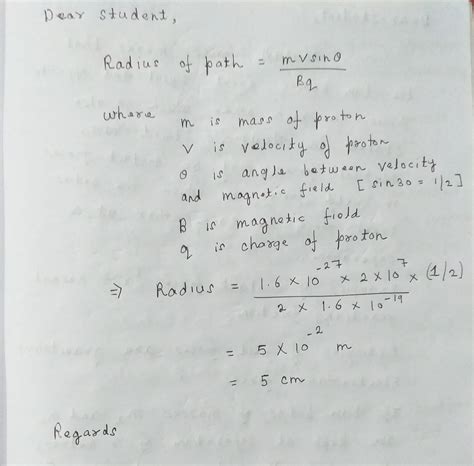 Dear student,
Radius of path = mvsinθ / Bq
where m is mass of proton
v is velocity of proton
θ is angle between velocity
and magnetic field [sin30 = 1/2]
B is magnetic field
q is charge of proton
⇒ Radius = 1.6 × 10⁻²⁷ × 2 × 10⁷ × (1/2) / 2 × 1.6 × 10⁻¹⁹
= 5 × 10⁻² m
= 5 cm
Regards